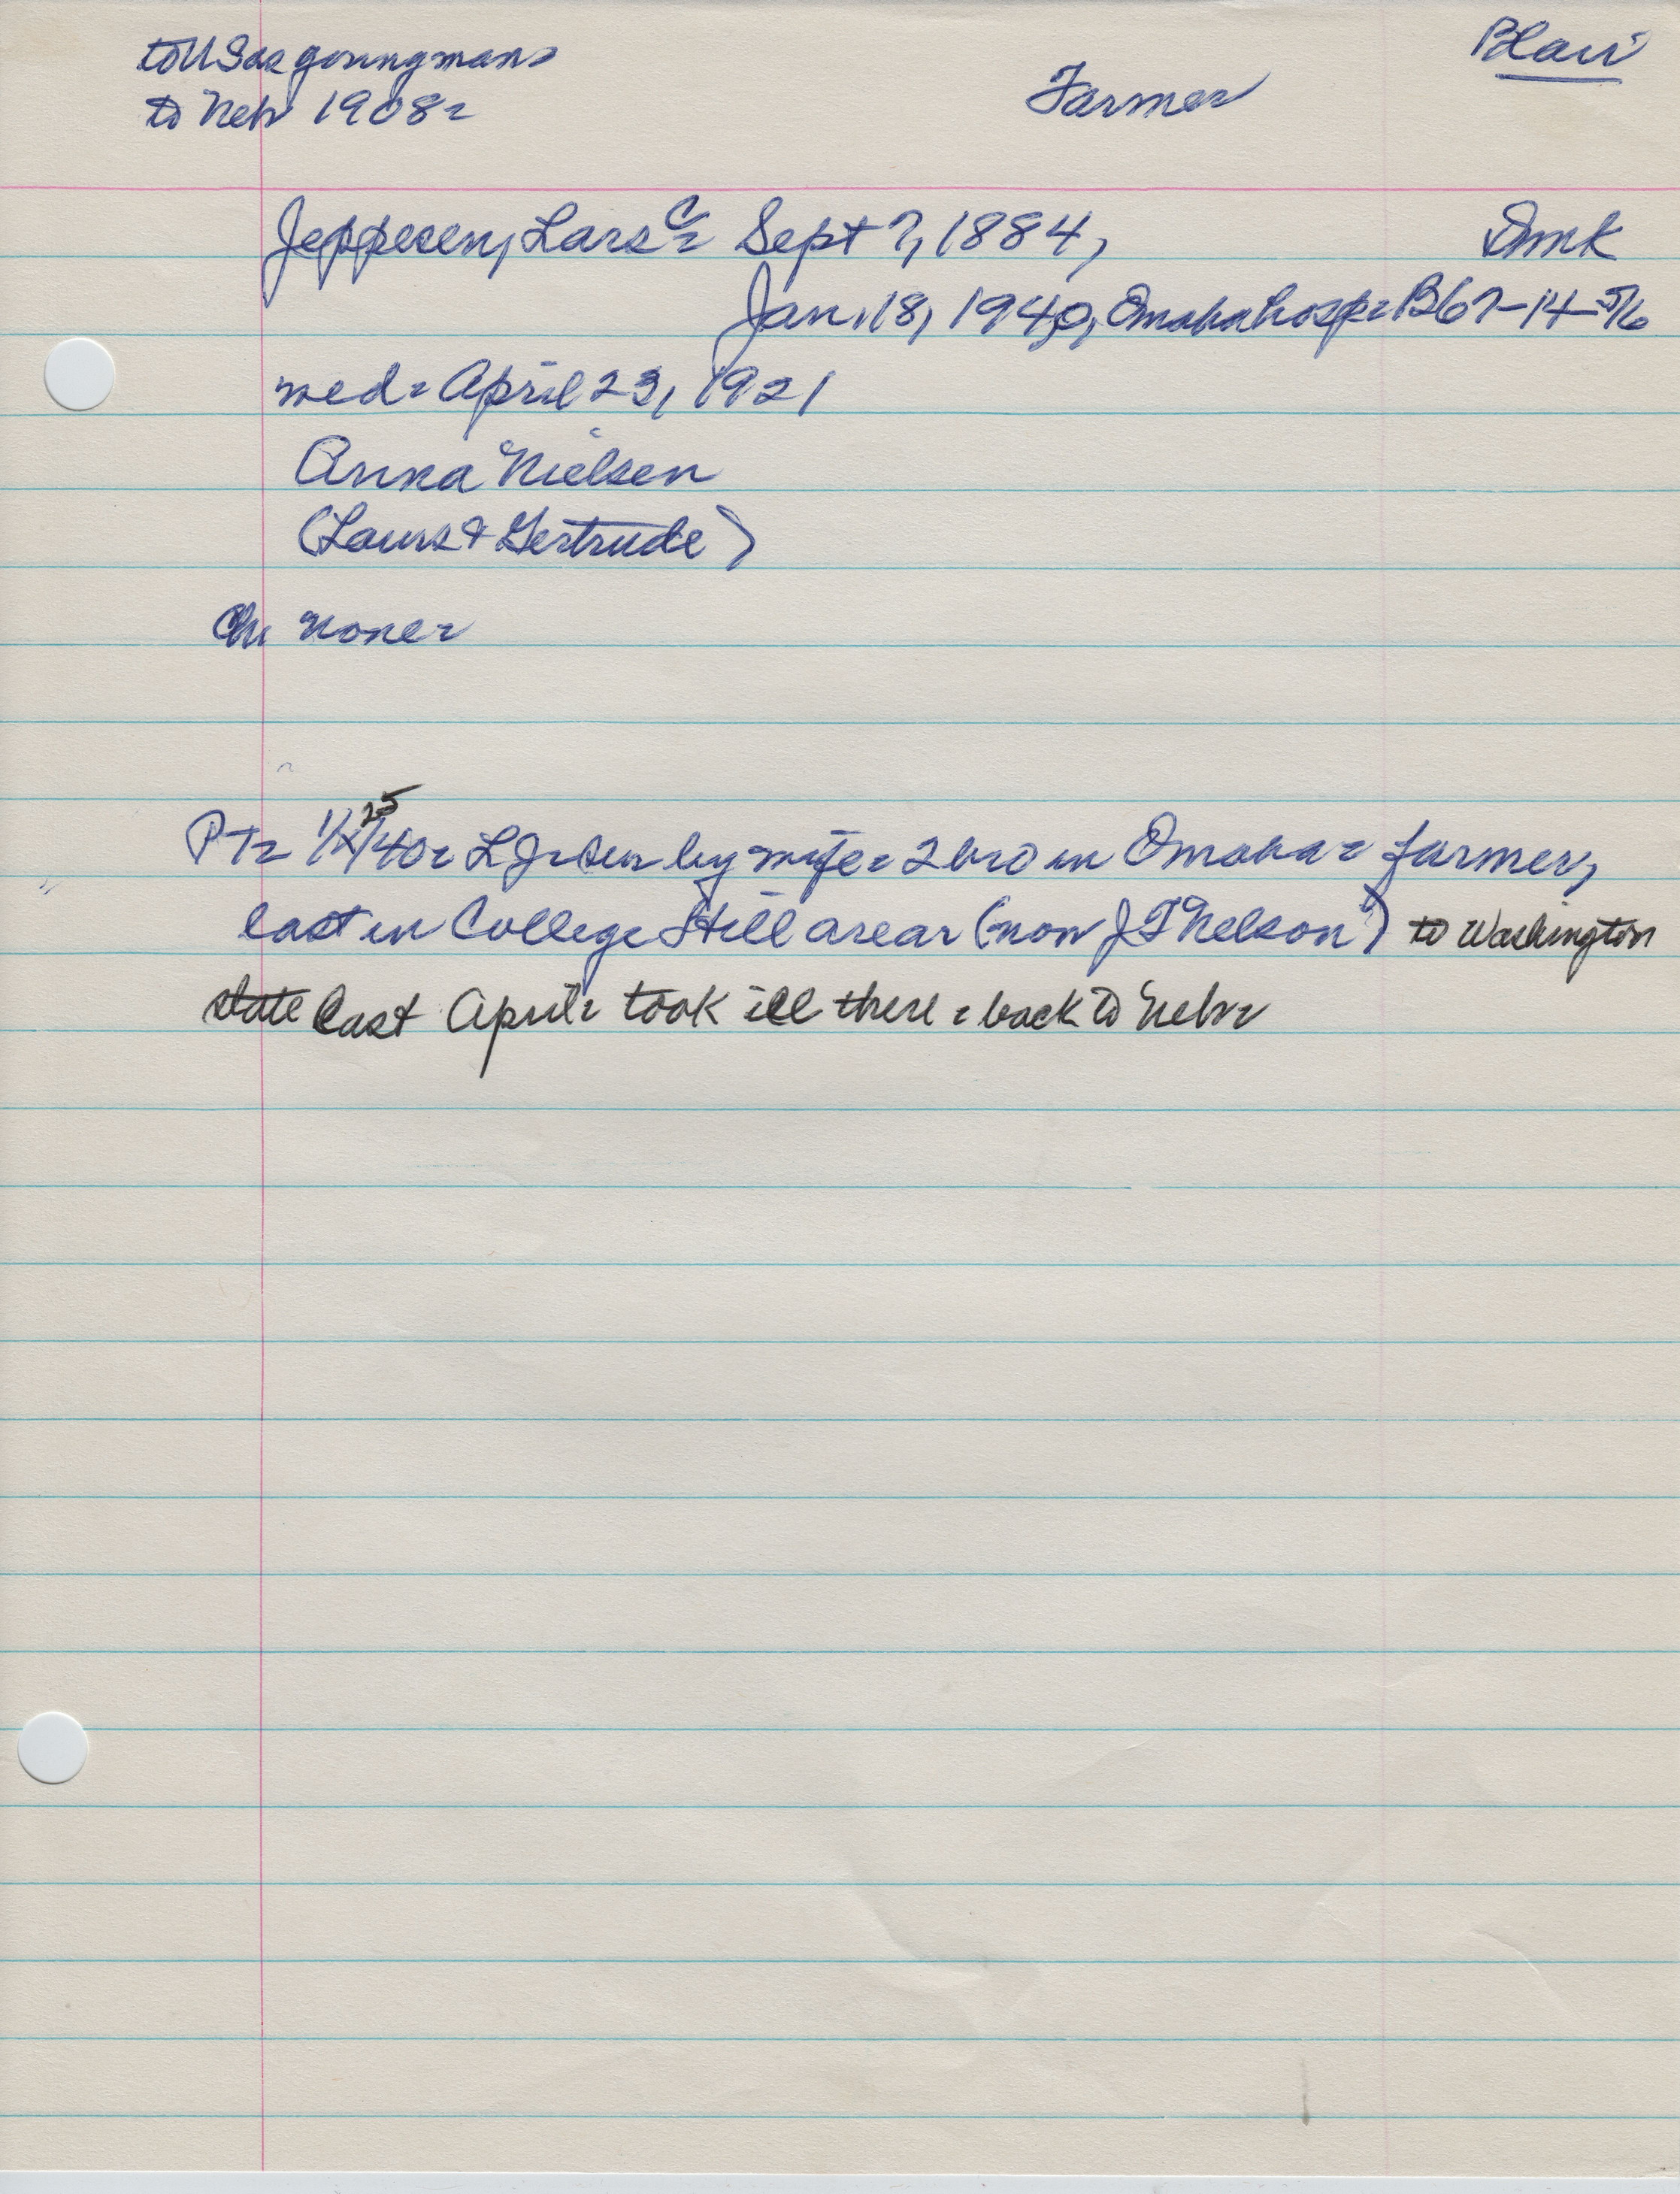 to USas young man=
to Neb 1908=
Farmer
Blair
Jeppesen, Lars C= Sept 7, 1884, Dmk
Jan. 18, 1940, Omaha hosp= B67-14-5/6
wed= April 23, 1921
Anna Nielsen
(Laurs & Gertrude)
Ch= none=
PT= 1/25/40= L J= sur by wife= 2 bro in Omaha= farmer,
last in College Hill area= (now J T Nelson") to Washington
state last April= took ill there= back to Nebr=